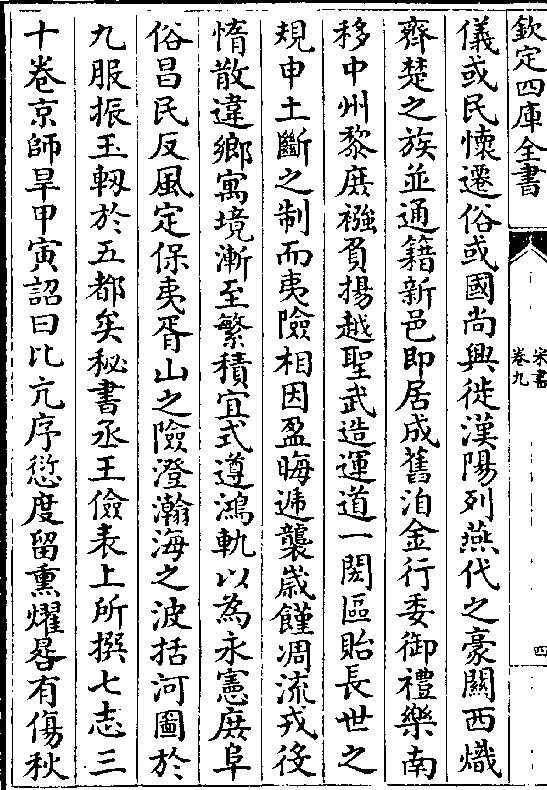 欽定四庫全書
宋書
卷九
四
儀或民懷遷俗或國尚興徙漢陽列燕代之豪關西熾
齊楚之族並通籍新邑即居成舊洎金行委御禮樂南
移中州黎庶襁負揚越聖武造運道一閎區貽長世之
規申土斷之制而夷險相因盈晦遞襲歲饉凋流戎役
惰散違鄉寓境漸至繁積宜式遵鴻軌以為永憲庶阜
俗昌民反風定保夷胥山之險澄瀚海之波括河圖於
九服振玉軔於五都矣秘書丞王儉表上所撰七志三
十卷京師旱甲寅詔曰比亢序愆度留熏燿晷有傷秋